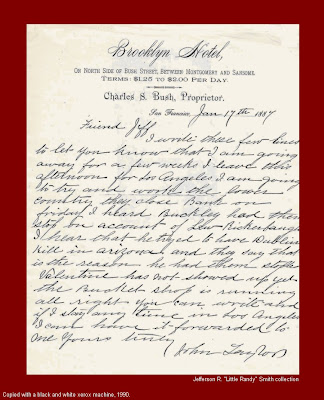 Brooklyn Hotel,
On North Side of Bush Street, Between Montgomery and Sansome.
Terms: $1.25 to $2.00 Per Day.
Charles S. Bush, Proprietor.
San Francisco, Jan 17th 1887
Friend Jeff
I write these few lines
to let you know that I am going
away for a few weeks I leave this
afternoon for Los Angeles I am going
to try and work the lower
country they close Bank on
friday I heard Buckley had them
stop on account of Lew Rickenbaugh
I hear that he tryed to have
kill in arizona and they say that
is the reason he had them stopt
Valentine has not showed up yet
the Bucket shop is running
all right you can write and
if I stay any time in Los Angeles
I can have it forwarded to
me Yours truly
John Taylor
Jefferson R. "Little Randy" Smith collection
Copied with a black and white xerox machine, 1990.